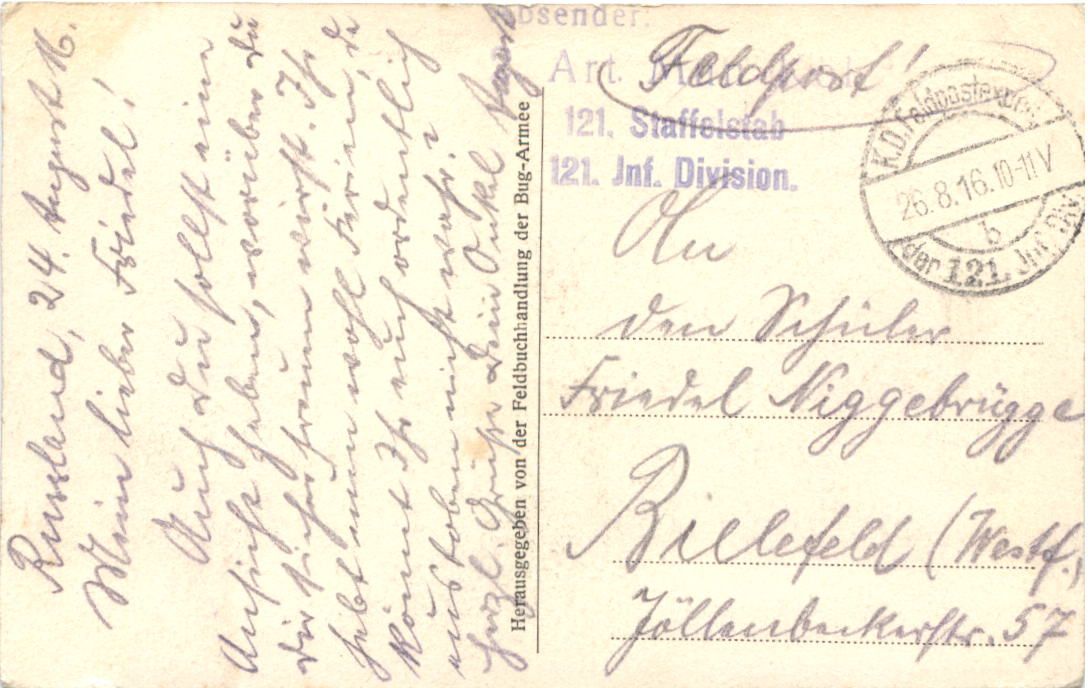 Russland, 24. August 16.
Mein lieber Friedel!
Auch Du sollst eine
Ansicht haben, worüber Du
Dir sicher freuen wirst. Ihr
habt nun wohl Ferien, da
könnt Ihr euch ordentlich
austoben nicht wahr?
Herzl. Grüße Dein Onkel August
Herausgegeben von der Feldbuchhandlung der Bug-Armee
Absender:
Art.
121. Staffelstab
121. Jnf. Division.
Feldpost!
K.D. Feldpostexped.
26.8.16.10-11V
b
der 121. Jnf. Div.
An
den Schüler
Friedel Niggebrügge
Bielefeld (Westf.)
Jöllenbeckerstr. 57